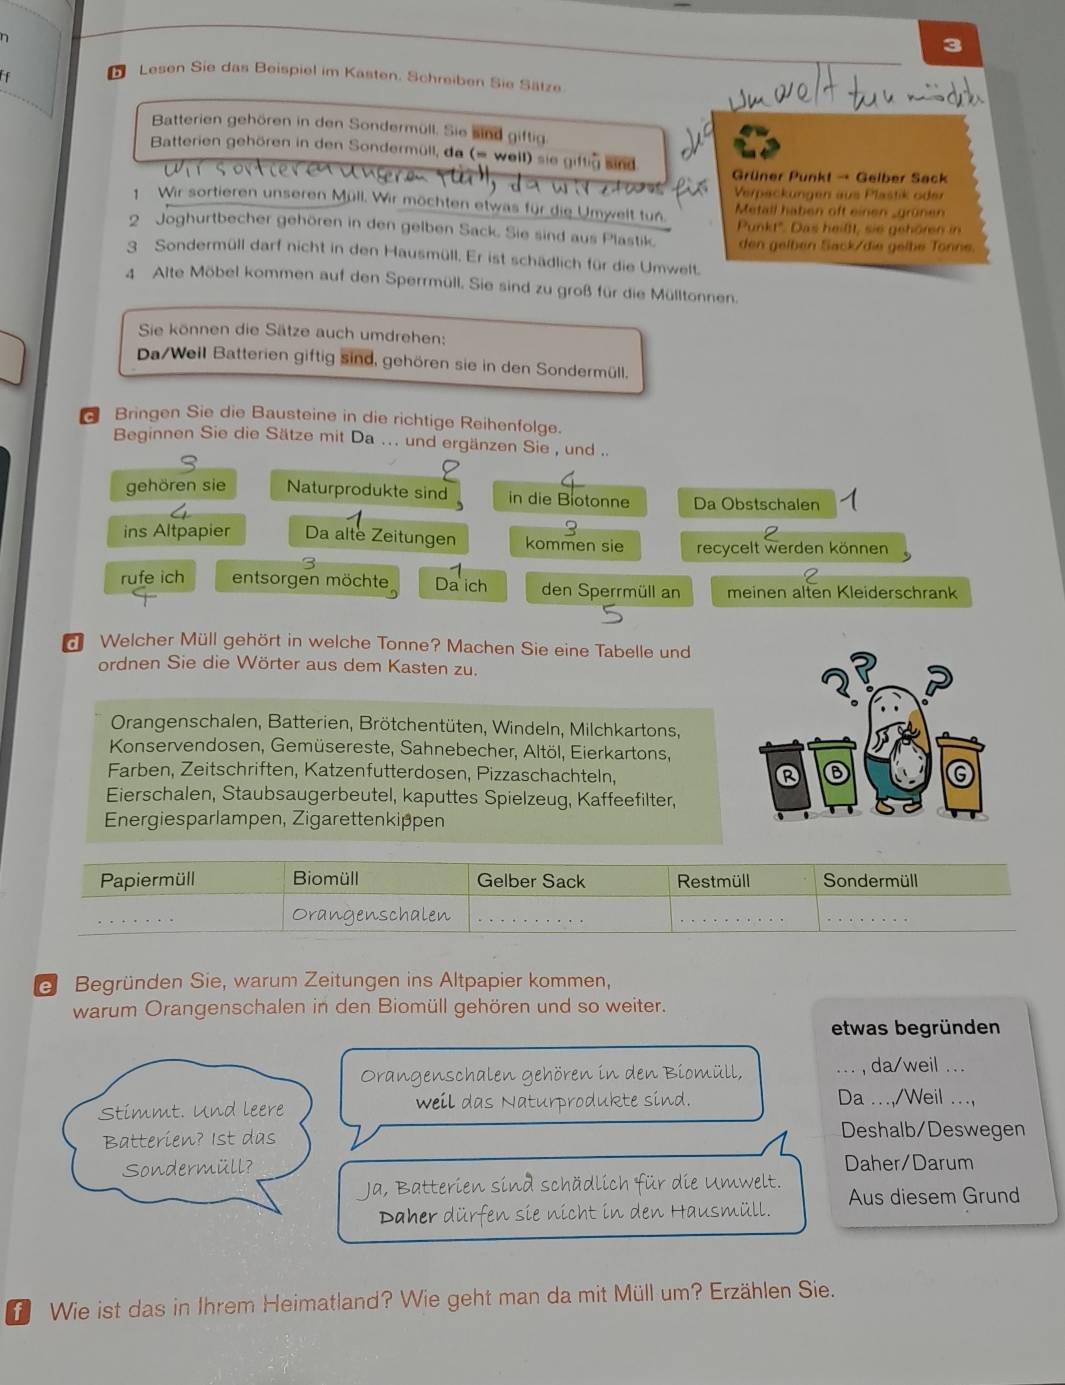 3
b Lesen Sie das Beispiel im Kasten. Schreiben Sie Sätze
Umwelt tun möchten
Batterien gehören in den Sondermüll. Sie sind giftig.
Batterien gehören in den Sondermüll, da (= weil) sie giftig sind.
Wir sortieren unseren Müll, da wir etwas für die
1 Wir sortieren unseren Müll. Wir möchten etwas für die Umwelt tun.
2 Joghurtbecher gehören in den gelben Sack. Sie sind aus Plastik.
3 Sondermüll darf nicht in den Hausmüll. Er ist schädlich für die Umwelt.
4 Alte Möbel kommen auf den Sperrmüll. Sie sind zu groß für die Mülltonnen.
Grüner Punkt → Gelber Sack
Verpackungen aus Plastik oder
Metall haben oft einen „grünen
Punkt". Das heißt, sie gehören in
den gelben Sack/die gelbe Tonne.
Sie können die Sätze auch umdrehen:
Da/Weil Batterien giftig sind, gehören sie in den Sondermüll.
c Bringen Sie die Bausteine in die richtige Reihenfolge.
Beginnen Sie die Sätze mit Da ... und ergänzen Sie , und ..
3 2 4
gehören sie Naturprodukte sind , in die Biotonne Da Obstschalen 1
4 1 3 2
ins Altpapier Da alte Zeitungen kommen sie recycelt werden können ,
3 1 2
rufe ich entsorgen möchte , Da ich den Sperrmüll an meinen alten Kleiderschrank
4 5
d Welcher Müll gehört in welche Tonne? Machen Sie eine Tabelle und
ordnen Sie die Wörter aus dem Kasten zu.
? ? ?
Orangenschalen, Batterien, Brötchentüten, Windeln, Milchkartons,
Konservendosen, Gemüsereste, Sahnebecher, Altöl, Eierkartons,
Farben, Zeitschriften, Katzenfutterdosen, Pizzaschachteln,
Eierschalen, Staubsaugerbeutel, kaputtes Spielzeug, Kaffeefilter,
Energiesparlampen, Zigarettenkippen
R B G
Papiermüll Biomüll Gelber Sack Restmüll Sondermüll
. . . . . . . Orangenschalen . . . . . . . . . . . . . . . . . . . . . . . . . . . .
e Begründen Sie, warum Zeitungen ins Altpapier kommen,
warum Orangenschalen in den Biomüll gehören und so weiter.
Stimmt. Und leere
Batterien? Ist das
Sondermüll?
Orangenschalen gehören in den Biomüll,
weil das Naturprodukte sind.
Ja, Batterien sind schädlich für die Umwelt.
Daher dürfen sie nicht in den Hausmüll.
etwas begründen
... , da/weil ...
Da ...,/Weil ...,
Deshalb/Deswegen
Daher/Darum
Aus diesem Grund
f Wie ist das in Ihrem Heimatland? Wie geht man da mit Müll um? Erzählen Sie.